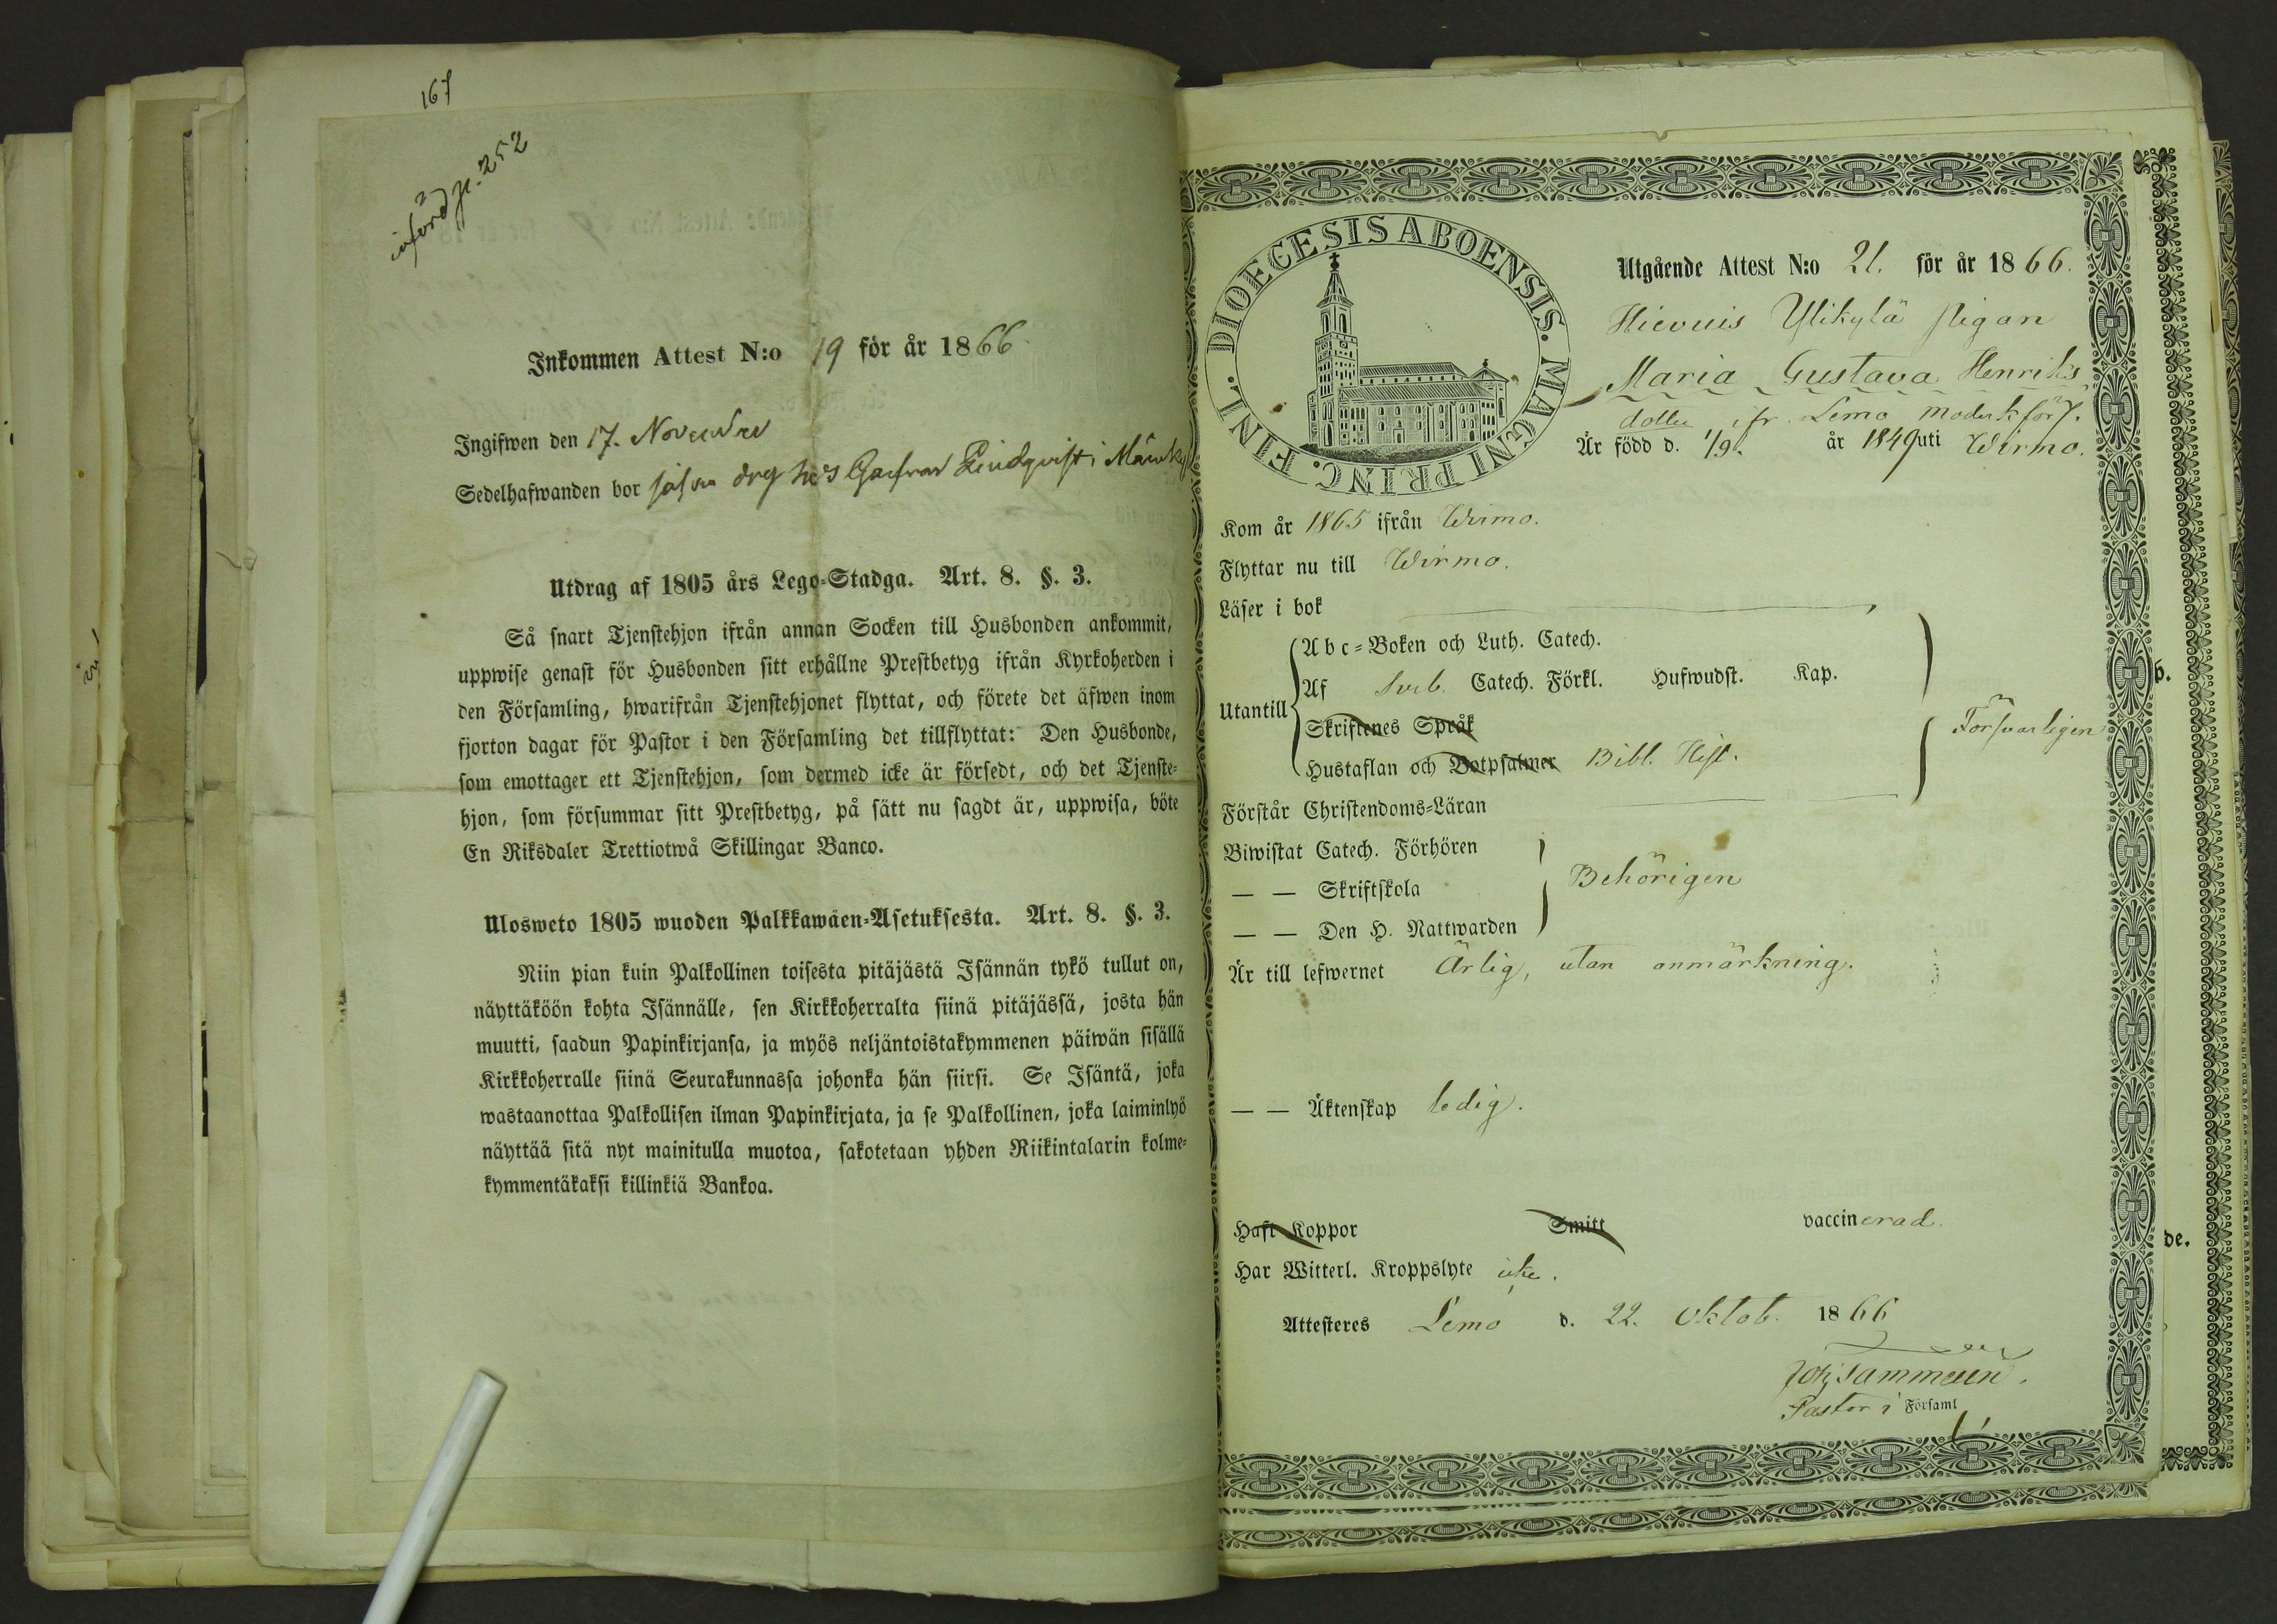 167
införd p. 252
Inkommen Attest N:o 19 för år 1866
Ingifwen den 17. November
Sedelhafwanden bor såsom drg hos Garfvar Lindqvist i
Utdrag af 1805 års Lego-Stadga. Art. 8. §. 3.
Så snart Tjenstehjon ifrån annan Socken till Husbonden ankommit,
uppwise genast för Husbonden sitt erhållne Prestbetyg ifrån Kyrkoherden i
den Församling, hwarifrån Tjenstehjonet flyttat, och förete det äfwen inom
fjorton dagar för Pastor i den Församling det tillflyttat: Den Husbonde,
som emottager ett Tjenstehjon, som dermed icke är försedt, och det Tjenste-
hjon, som försummar sitt Prestbetyg, på sätt nu sagdt är, uppwisa, böte
En Riksdaler Trettiotwå Skillingar Banco.
Ulosweto 1805 wuoden Palkkawäen-Asetuksesta. Art. 8. §. 3.
Niin pian kuin Palkollinen toisesta pitäjästä Isännän tykö tullut on,
näyttäköön kohta Isännälle, sen Kirkkoherralta siinä pitäjässä, josta hän
muutti, saadun Papinkirjansa, ja myös neljäntoistakymmenen päiwän sisällä
Kirkkoherralle siinä Seurakunnassa johonka hän siirsi. Se Isäntä, joka
wastaanottaa Palkollisen ilman Papinkirjata, ja se Palkollinen, joka laiminlyö
näyttää sitä nyt mainitulla muotoa, sakotetaan yhden Riikintalarin kolme-
kymmentäkaksi killinkiä Bankoa.
DIOECESIS ABOENSIS. MAGNI PRINC. FINL.
Utgående Attest N:o 21. för år 1866.
Hievuis Ylikylä pigan
Maria Gustava Henriks
dotter ifr. Lemo moderk förs.
Är född d. 1/9. år 1849 uti Wirmo.
Kom år 1865 ifrån Wirmo.
Flyttar nu till Wirmo.
Läser i bok
Utantill
Abc-Boken och Luth. Catech.
Af Sveb. Catech. Förkl. Hufwudst. Kap.
Skriftenes Språk
Hustaflan och Botpsalmer Bibl. Hist.
Försvarligen
Förstår Christendoms-Läran
Biwistat Catech. Förhören
— — Skriftskola
Behörigen
— — Den H. Nattwarden
Är till lefwernet Ärlig, utan anmärkning.
— — Äktenskap ledig.
Haft Koppor Smitt vaccinerad.
Har Witterl. Kroppslyte icke.
Attesteres Lemo d. 22. Oktob. 1866
Joh Tammelin.
Pastor i Församl
b.
de.